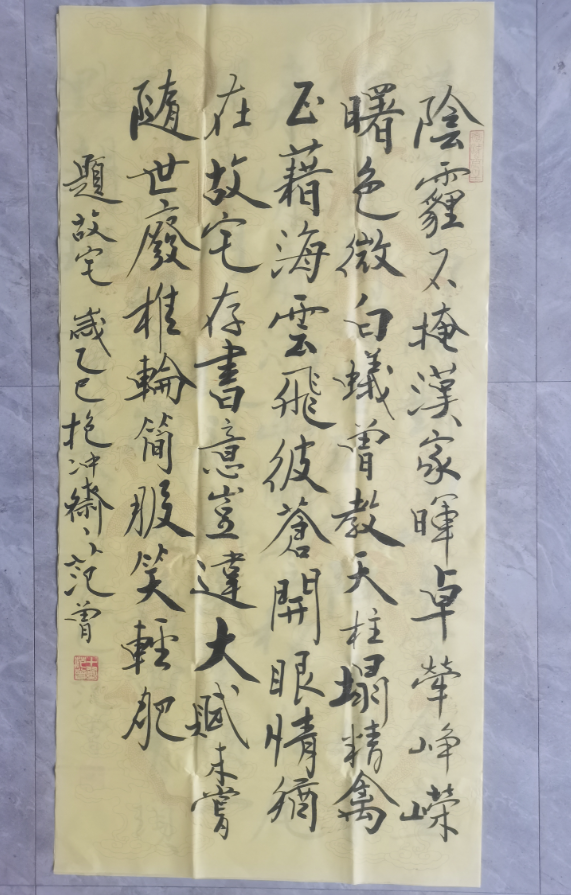 陰霾不掩漢家暉卓犖崢嶸
曙色微白蟻曾教天柱塌精禽
正藉海雲飛彼蒼開眼情猶
在故宅存書意豈違大賦未嘗
隨世廢椎輪簡服笑輕肥
題故宅 歲乙巳抱冲齋范曾